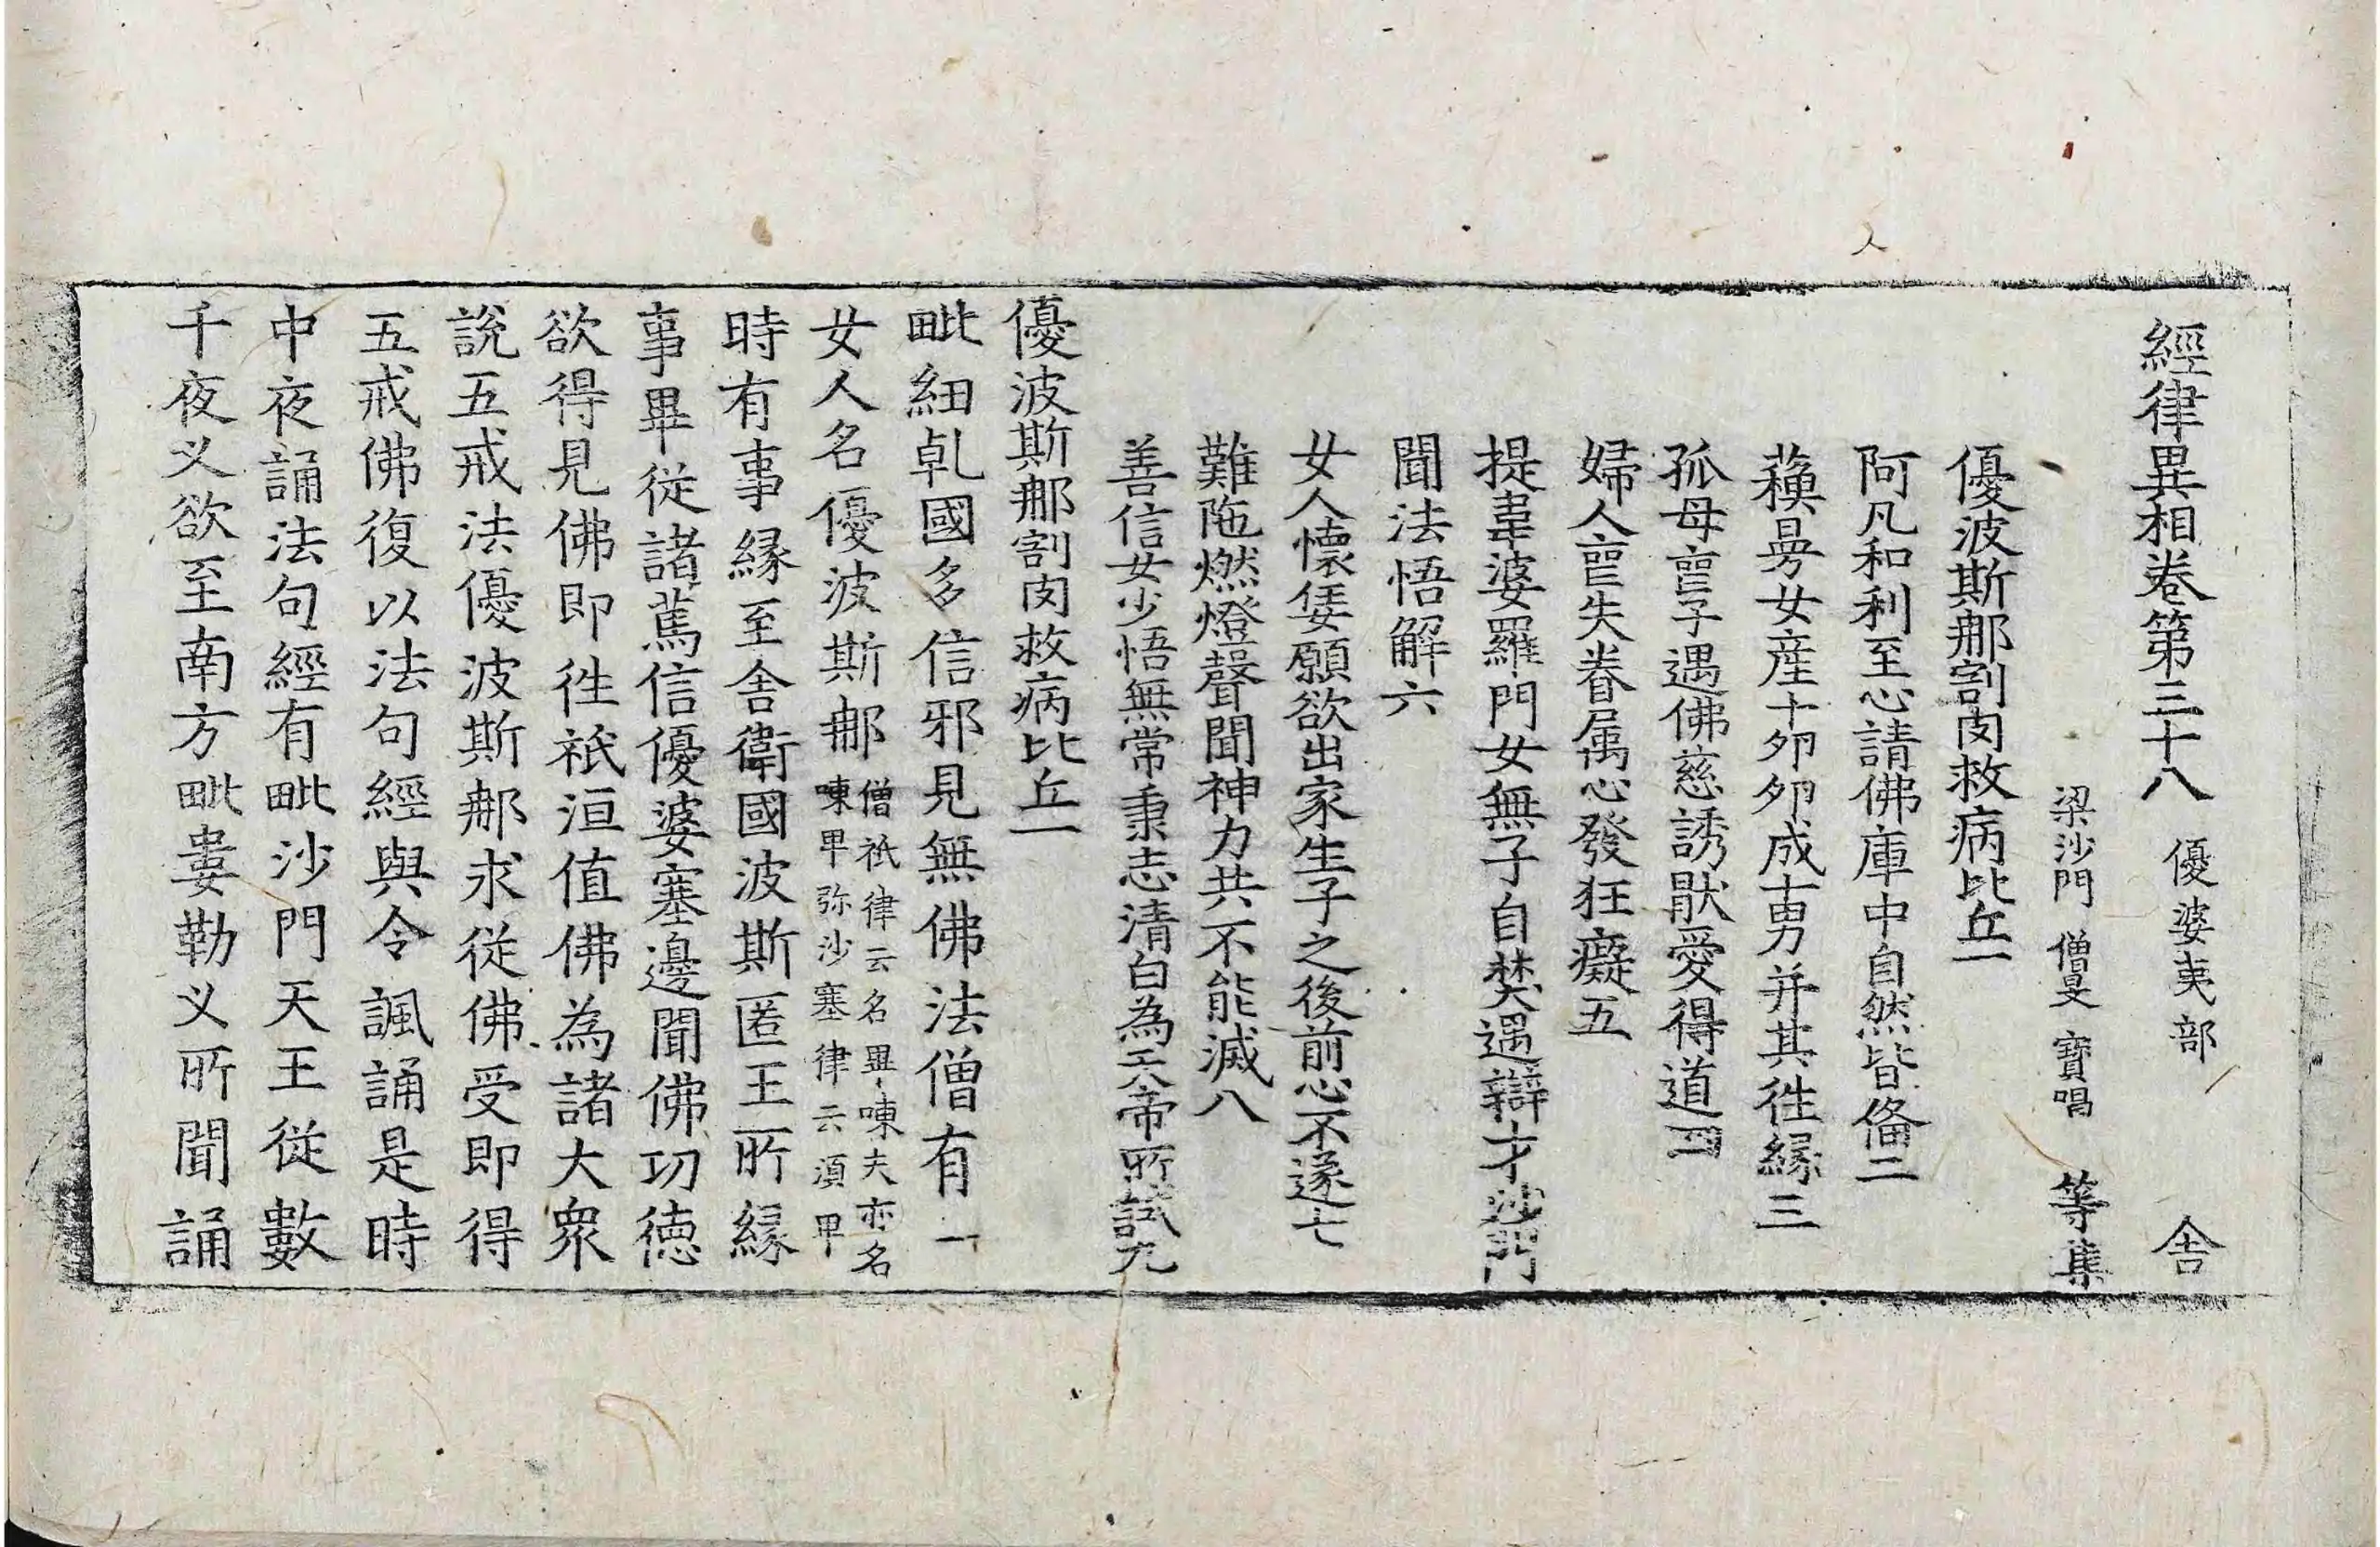 經律異相卷第三十八 優婆夷部 舎
梁沙門 僧旻 寶唱 等集
優波斯那割肉救病比丘一
阿凡和利至心請佛庫中自然皆俻二
蘓曼女産十卵卵成十男并其往縁三
孤母䘮子遇佛慈誘猒愛得道四
婦人䘮失眷属心發狂癡五
提韋婆羅門女無子自焚遇辯才沙門
聞法悟解六
女人懷妊願欲出家生子之後前心不遂七
難陁燃燈聲聞神力共不能滅八
善信女少悟無常秉志清白為天帝所試九
優波斯那割肉救病比丘一
毗紐乹國多信邪見無佛法僧有一
女人名優波斯那僧祇律云名畢㖦夫亦名㖦卑弥沙塞律云湏卑
時有事縁至舎衛國波斯匿王所縁
事畢從諸篤信優婆塞邊聞佛功徳
欲得見佛即往祇洹值佛為諸大衆
説五戒法優波斯那求從佛受即得
五戒佛復以法句經與令諷誦是時
中夜誦法句經有毗沙門天王從數
千夜叉欲至南方毗婁勒叉所聞誦